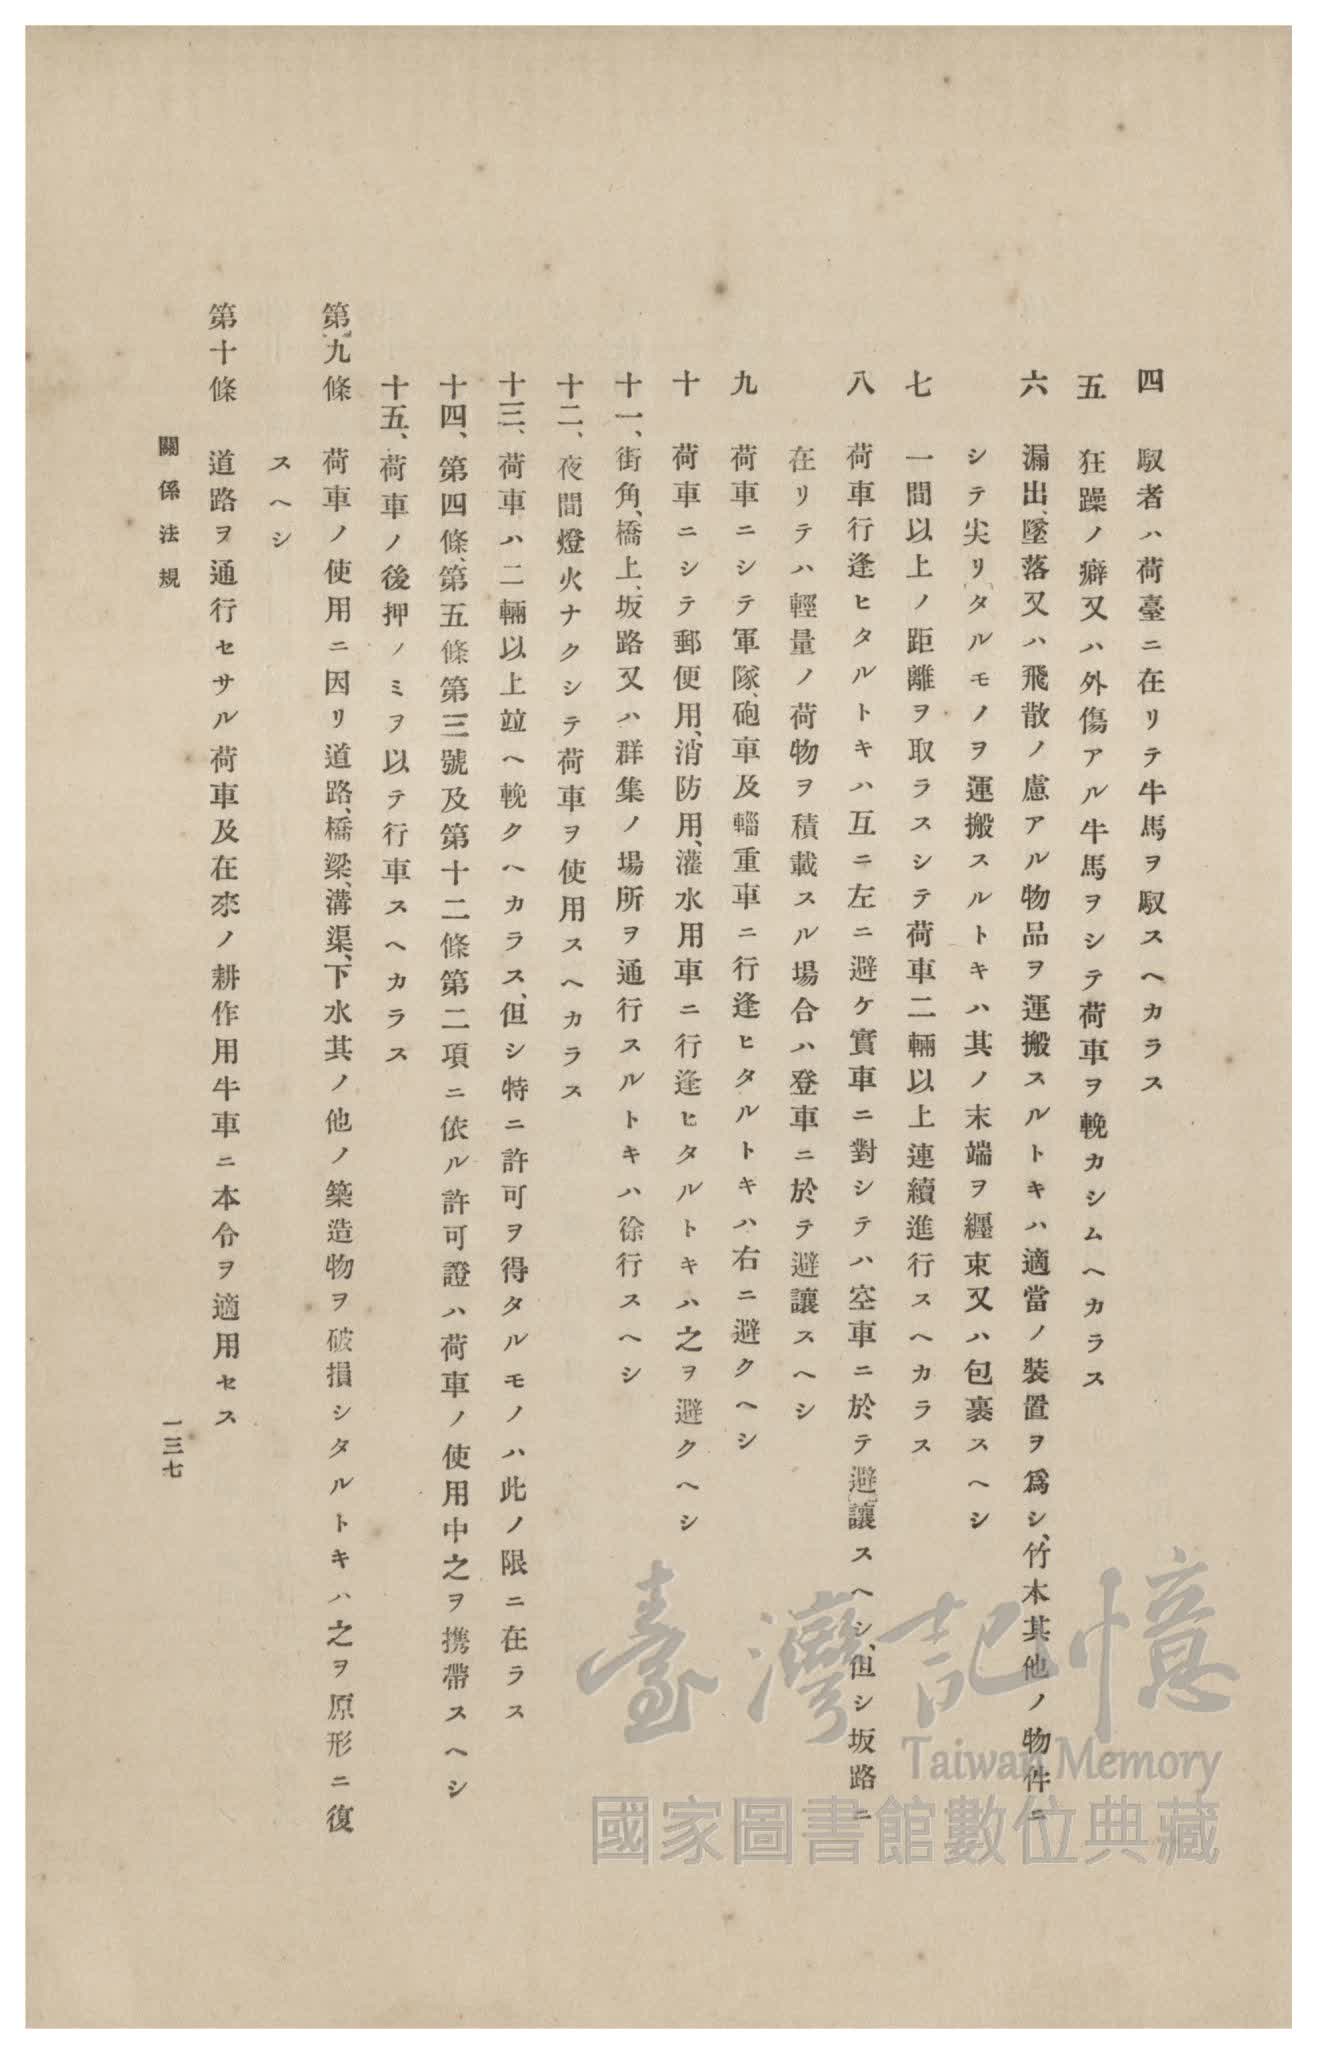 四　馭者ハ荷臺ニ在リテ牛馬ヲ馭スヘカラス
五　狂躁ノ癖又ハ外傷アル牛馬ヲシテ荷車ヲ輓カシムヘカラス
六　漏出、墜落又ハ飛散ノ慮アル物品ヲ運搬スルトキハ適當ノ裝置ヲ爲シ、竹木其他ノ物件ニ
シテ尖リタルモノヲ運搬スルトキハ其ノ末端ヲ纒束又ハ包裹スヘシ
七　一間以上ノ距離ヲ取ラスシテ荷車二輛以上連續進行スヘカラス
八　荷車行逢ヒタルトキハ互ニ左ニ避ケ實車ニ對シテハ空車ニ於テ避讓スヘシ、但シ坂路ニ
在リテハ輕量ノ荷物ヲ積載スル場合ハ登車ニ於テ避讓スヘシ
九　荷車ニシテ軍隊、砲車及輜重車ニ行逢ヒタルトキハ右ニ避クヘシ
十　荷車ニシテ郵便用、消防用、灌水用車ニ行逢ヒタルトキハ之ヲ避クヘシ
十一、街角、橋上、坂路又ハ群集ノ場所ヲ通行スルトキハ徐行スヘシ
十二、夜間燈火ナクシテ荷車ヲ使用スヘカラス
十三、荷車ハ二輛以上竝ヘ輓クヘカラス、但シ特ニ許可ヲ得タルモノハ此ノ限ニ在ラス
十四、第四條、第五條第三號及第十二條第二項ニ依ル許可證ハ荷車ノ使用中之ヲ携帶スヘシ
十五、荷車ノ後押ノミヲ以テ行車スヘカラス
第九條　荷車ノ使用ニ因リ道路、橋梁、溝渠、下水其ノ他ノ築造物ヲ破損シタルトキハ之ヲ原形ニ復
スヘシ
第十條　道路ヲ通行セサル荷車及在來ノ耕作用牛車ニ本令ヲ適用セス
關係法規
一三七
臺灣記憶
Taiwan Memory
國家圖書館數位典藏